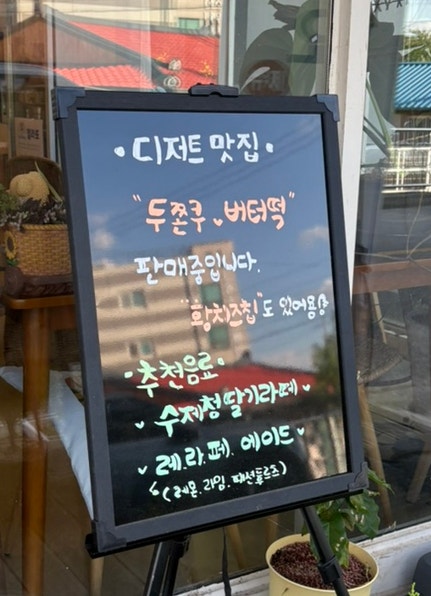 • 디저트 맛집 •
"두쫀쿠 ⌣ 버터떡"
판매중입니다.
"황치즈칩"도 있어용
• 추천음료 •
⌣ 수제청딸기라떼 ⌣
⌣ 레.라.패. 에이드 ⌣
↳ (레몬.라임.패션후르츠)